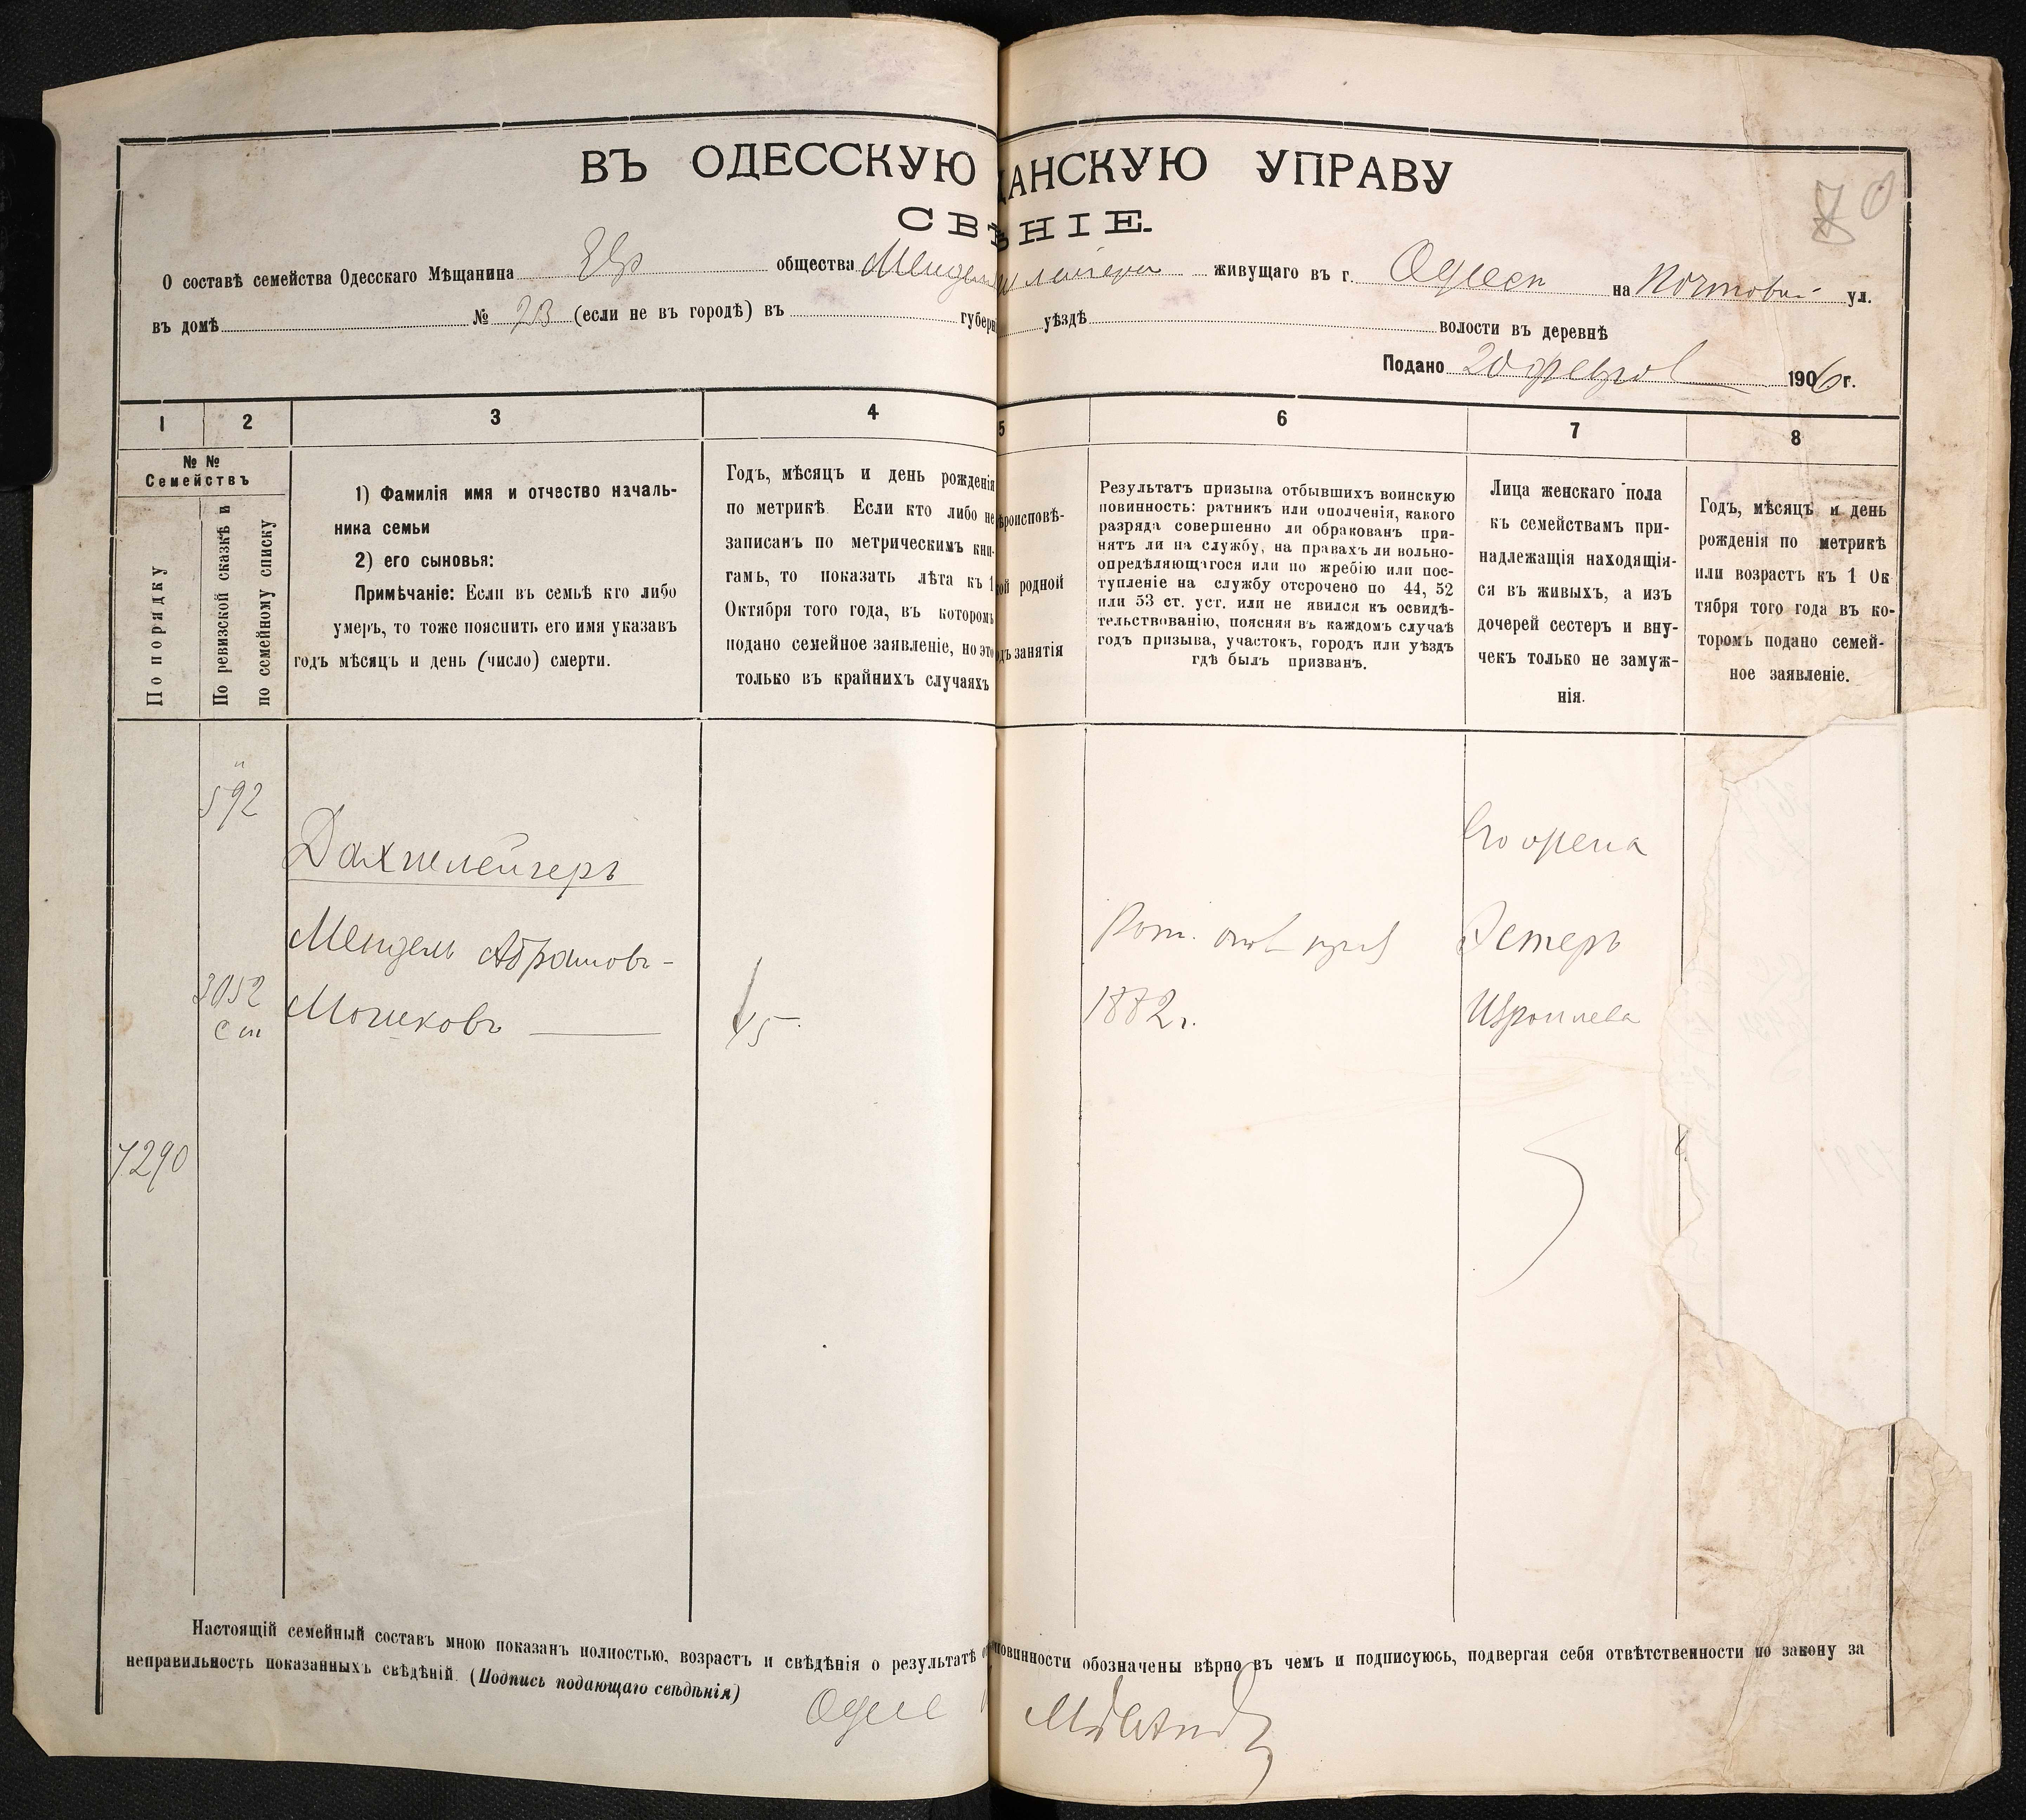 ВЪ ОДЕССКУЮ ДАНСКУЮ УПРАВУ
СВѢНІЕ.
80
О составѣ семейства Одесскаго Мѣщанина Евр общества Мендел живущаго въ г. Одессѣ на Почтовой ул.
въ домѣ № 23 (если не въ городѣ) въ губерн уѣздѣ волости въ деревнѣ
Подано 20 феврал 1906 г.
1 2 3 4 5 6 7 8
№ № Семействъ
По порядку
По ревизской сказкѣ и
по семейному списку
1) Фамилія имя и отчество началь-
ника семьи
2) его сыновья:
Примѣчаніе: Если въ семьѣ кто либо
умеръ, то тоже пояснить его имя указавъ
годъ мѣсяцъ и день (число) смерти.
Годъ, мѣсяцъ и день рожденія
по метрикѣ. Если кто либо не
записанъ по метрическимъ кни-
гамъ, то показать лѣта къ 1
Октября того года, въ которомъ
подано семейное заявленіе, но это
только въ крайнихъ случаяхъ
ѣроисповѣ-
ой родной
дъ занятія
Результатъ призыва отбывшихъ воинскую
повинность: ратникъ или ополченія, какого
разряда совершенно ли обракованъ при-
нятъ ли на службу, на правахъ ли вольно-
опредѣляющагося или по жребію или пос-
тупленіе на службу отсрочено по 44, 52
или 53 ст. уст. или не явился къ освидѣ-
тельствованію, поясняя въ каждомъ случаѣ
годъ призыва, участокъ, городъ или уѣздъ
гдѣ былъ призванъ.
Лица женскаго пола
къ семействамъ при-
надлежащія находящія-
ся въ живыхъ, а изъ
дочерей сестеръ и вну-
чекъ только не замуж-
нія.
Годъ, мѣсяцъ и день
рожденія по метрикѣ
или возрастъ къ 1 Ок
тября того года въ ко-
торомъ подано семей-
ное заявленіе.
592
Дахшлейгеръ
Его жена
Мендель Абрамовъ-
Рат. опол приз
Эстеръ
3052
Мошковъ
45
1882 г.
Израилева
Сп
7290
Настоящій семейный составъ мною показанъ полностью, возрастъ и свѣдѣнія о результатѣ о повинности обозначены вѣрно въ чемъ и подписуюсь, подвергая себя отвѣтственности по закону за
неправильность показанныхъ свѣдѣній. (Подпись подающаго свѣдѣнія)